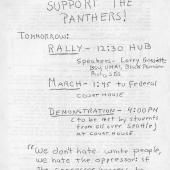 SUPPORT THE
PANTHERS!
TOMORROW:
RALLY - 12:30 HUB
Speakers - Larry Gossett
BSU,
MARCH - 1:45 to Federal
COURT HOUSE
DEMONSTRATION - 4:00 PM
(to be met by students
from all over Seattle)
at COURT HOUSE
"We don't hate white people,
we hate the oppressor: if
the oppressor happens to